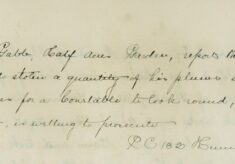 Gable, Half Acres Preston, reports th
stolen a quantity of his plums a
es for a Constable to look round,
, is willing to prosecute
P.C 182 Hum